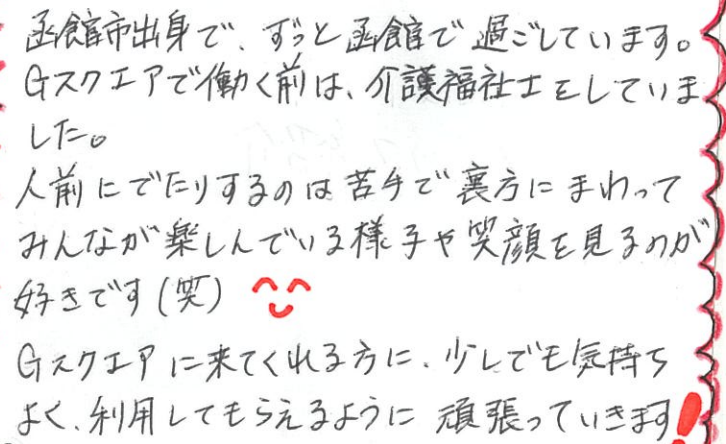 函館市出身で、ずっと函館で過ごしています。
Gスクエアで働く前は、介護福祉士をしていま
した。
人前にでたりするのは苦手で裏方にまわって
みんなが楽しんでいる様子や笑顔を見るのが
好きです(笑)
Gスクエアに来てくれる方に、少しでも気持ち
よく、利用してもらえるように頑張っていきます!